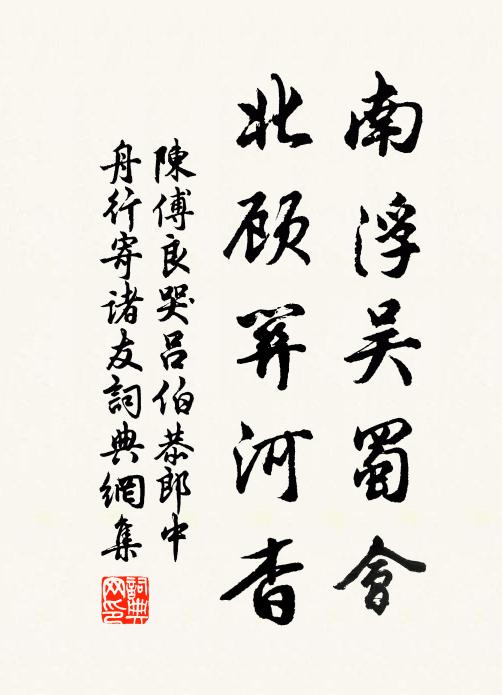 南浮吴蜀會
北顾關河杳
陳傅良哭呂伯恭郎中
舟行寄诸友詞典網集
詞典网印